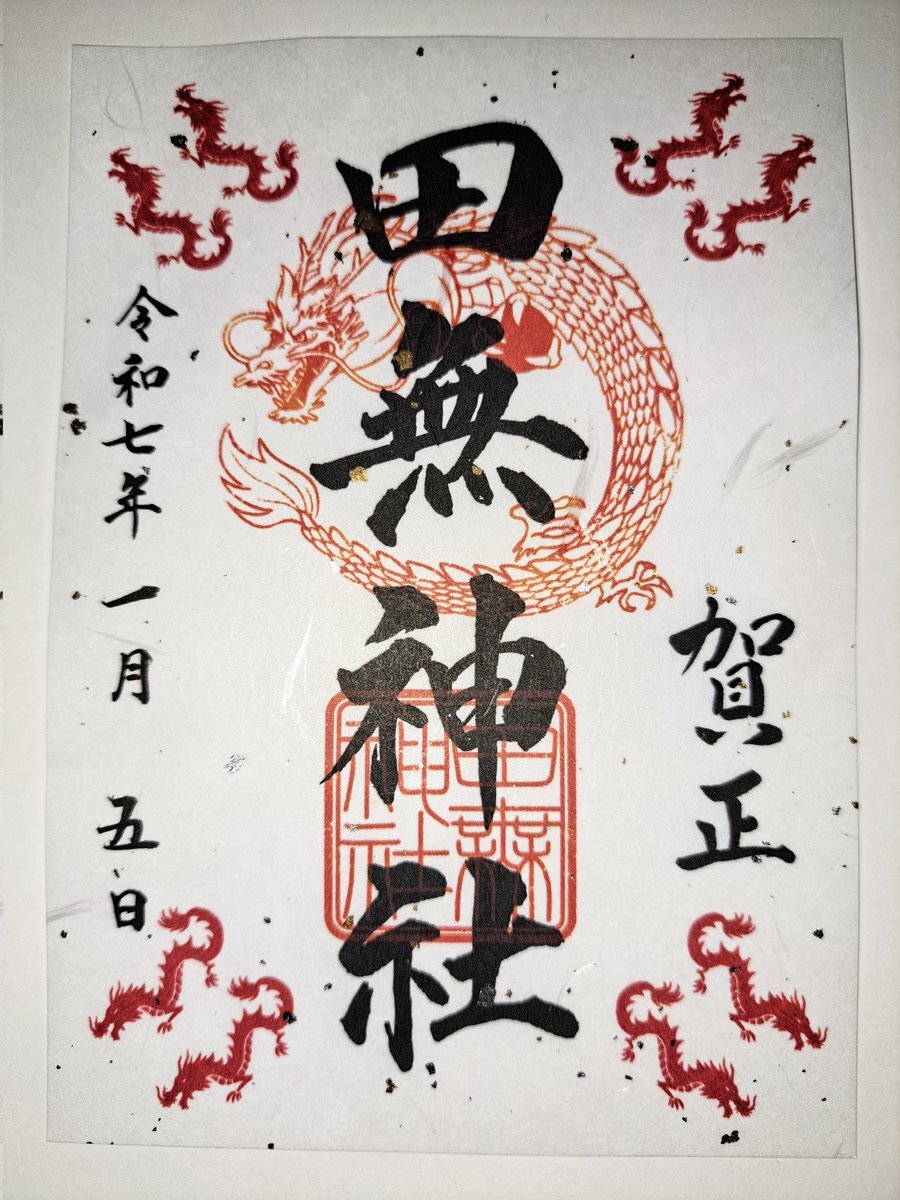 賀正
田無神社
田無神社
令和七年 一月 五日